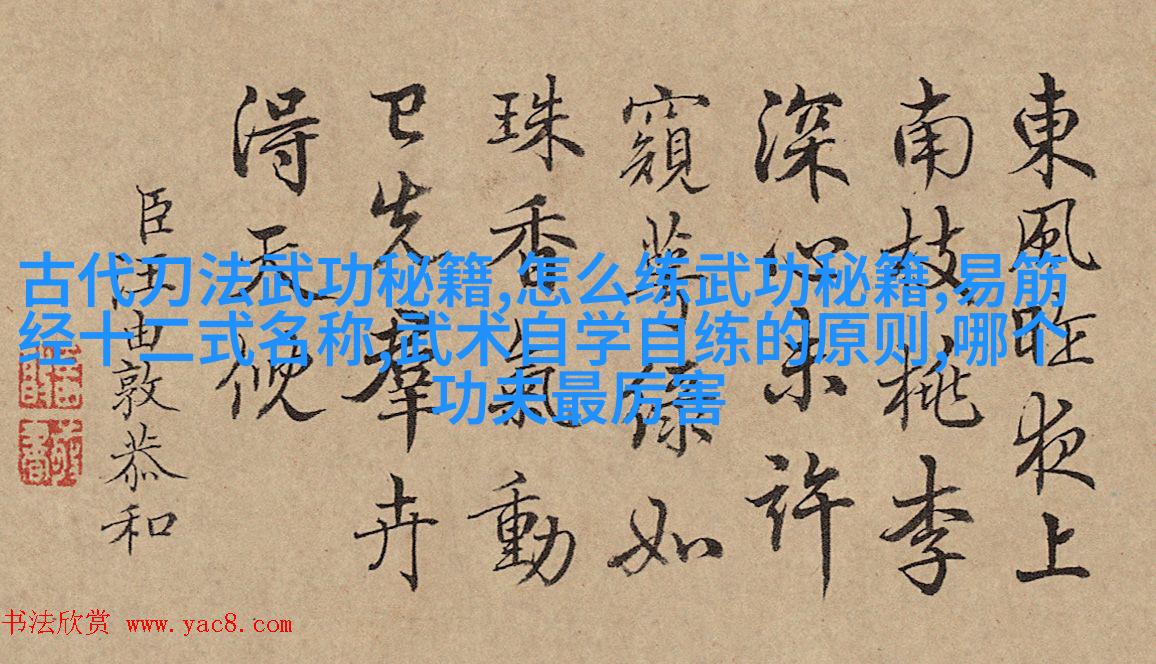 東風昨夜上
南枝桃李
深心未許
窺萼綠如
珠香氣動
已先羣卉
得天倪
臣汪由敦恭和
古代刀法武功秘籍,怎么练武功秘籍,易筋
经十二式名称,武术自学自练的原则,哪个
功夫最厉害
书法欣赏 www.yac8.com